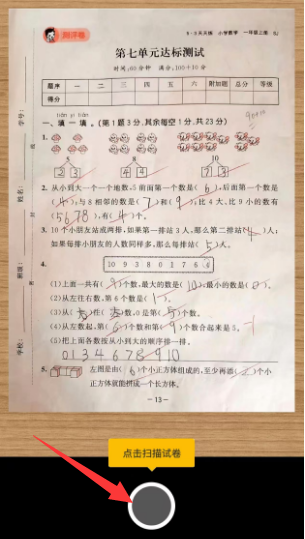 测评卷
5·3天天练 小学数学 一年级上册 BJ
第七单元达标测试
时间:60分钟 满分:100+10分
题序 一 二 三 四 五 六 附加题 总分 等级
得分
一、填一填。(第1题3分,其余每空1分,共23分)
1.
5 8 10
2 3 4 4
2. 从小到大一个一个地数,5前面第一个数是( ),后面第一个数是
( ),与8相邻的数是(7)和(9),比4大、比9小的数有
(5678),有(4)个。
3. 10个小朋友站成两排,如果第一排站3人,那么第二排站( )人;
如果每排小朋友的人数同样多,那么每排站(5)人。
4.
10 9 3 8 0 1 7 6 4
(1)上面一共有( )个数,最大的数是(10),最小的数是(0)。
(2)从左往右数,第6个数是(1)。
(3)从( )往( )数,0是第(5)个数。
(4)从左数起,第( )个数和第(9)个数合起来是5。
(5)把上面各数按从小到大的顺序排一排。
0 1 3 4 6 7 8 9 10
5. 左图是由(6)个小正方体组成的,至少再添( )个小
正方体就能拼成一个长方体。
-13-
学校:
班级:
姓名:
学号:
点击扫描试卷